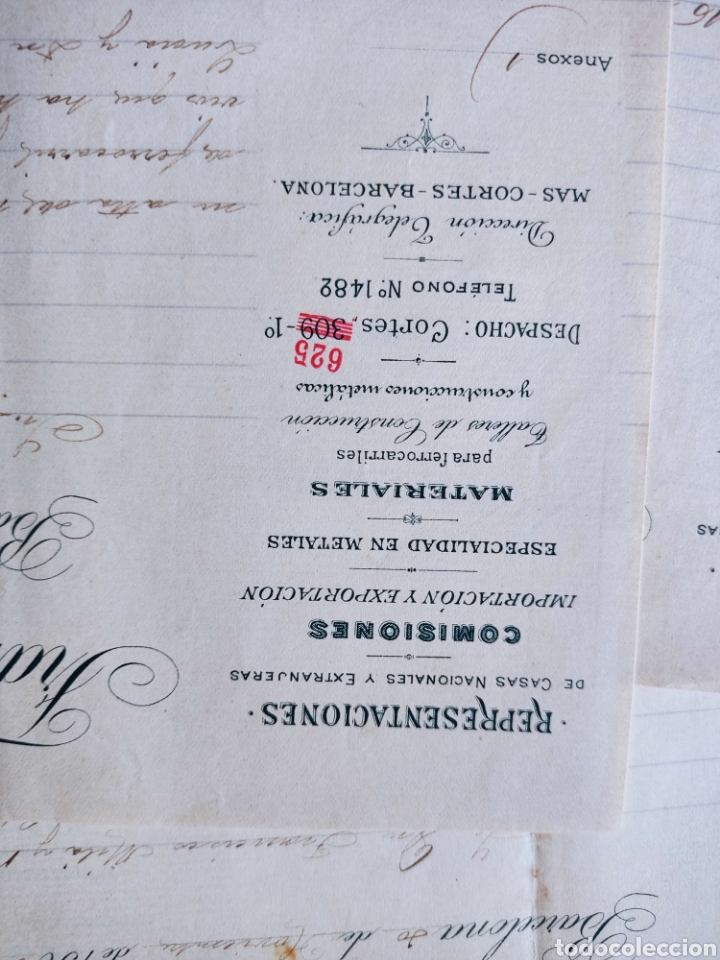 · REPRESENTACIONES ·
DE CASAS NACIONALES Y EXTRANJERAS
COMISIONES
IMPORTACIÓN Y EXPORTACIÓN
ESPECIALIDAD EN METALES
MATERIALES
para ferrocarriles
Talleres de Construcción
y construcciones metálicas
625
DESPACHO: Cortes, 309-1º
TELÉFONO Nº 1482
Dirección Telegráfica:
MAS-CORTES-BARCELONA.
Anexos 1
y Don
que ha
de ferrocarril
Barcelona
de Noviembre de
Don Francisco
todocoleccion